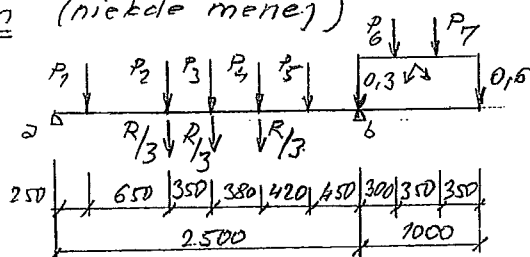 (niekde menej)
P6 P7
P1 P2 P3 P4 P5 0,3 0,5
a R/3 R/3 R/3 b
250 650 350 380 420 450 300 350 350
2.500 1000